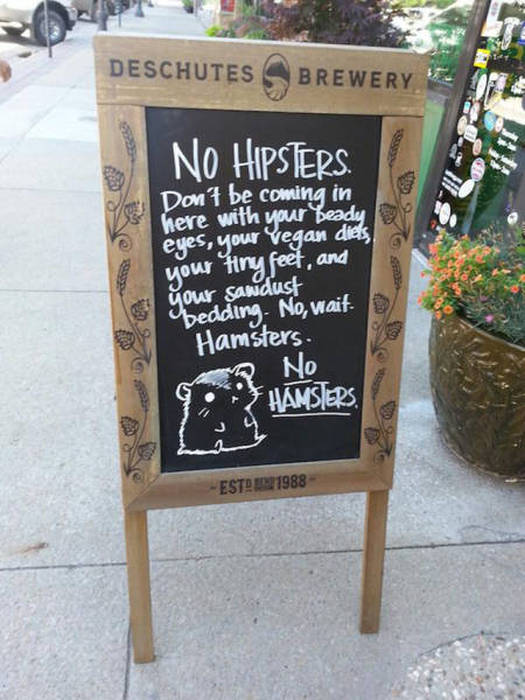 DESCHUTES BREWERY
NO HIPSTERS.
Don't be coming in
here with your beady
eyes, your vegan diets,
your tiny feet, and
your sawdust
bedding. No, wait.
Hamsters.
No
HAMSTERS.
ESTD BEND 1988